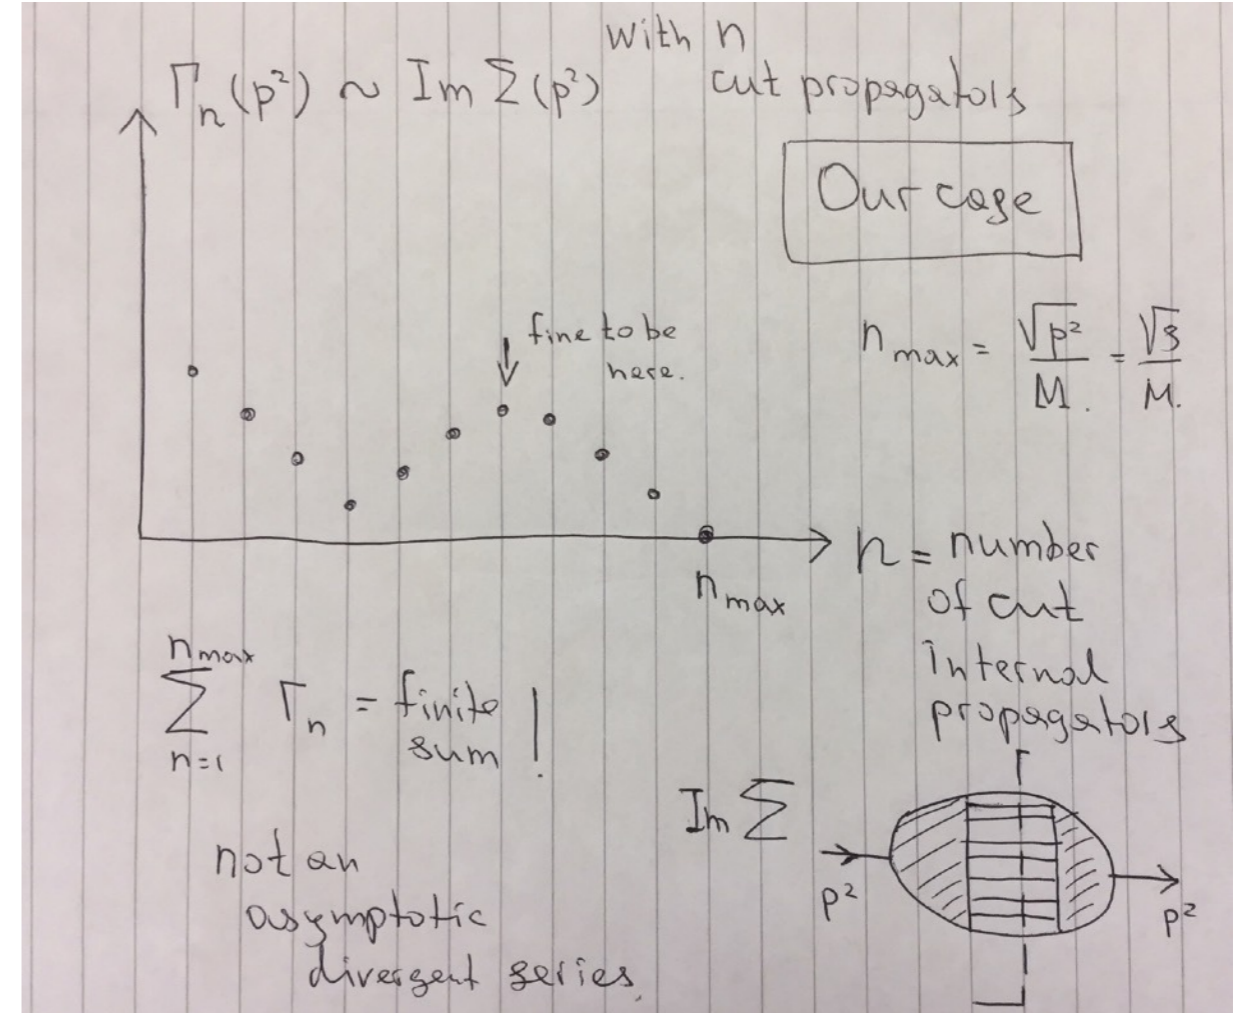 with n
Γn(p²) ~ Im Σ(p²) cut propagators
Our case
fine to be
here.
n max = √p² / M. = √s / M.
n = number
of cut
internal
propagators
n max
n max
Σ Γn = finite
sum !
n=1
not an
asymptotic
divergent series.
Im Σ
p²
p²